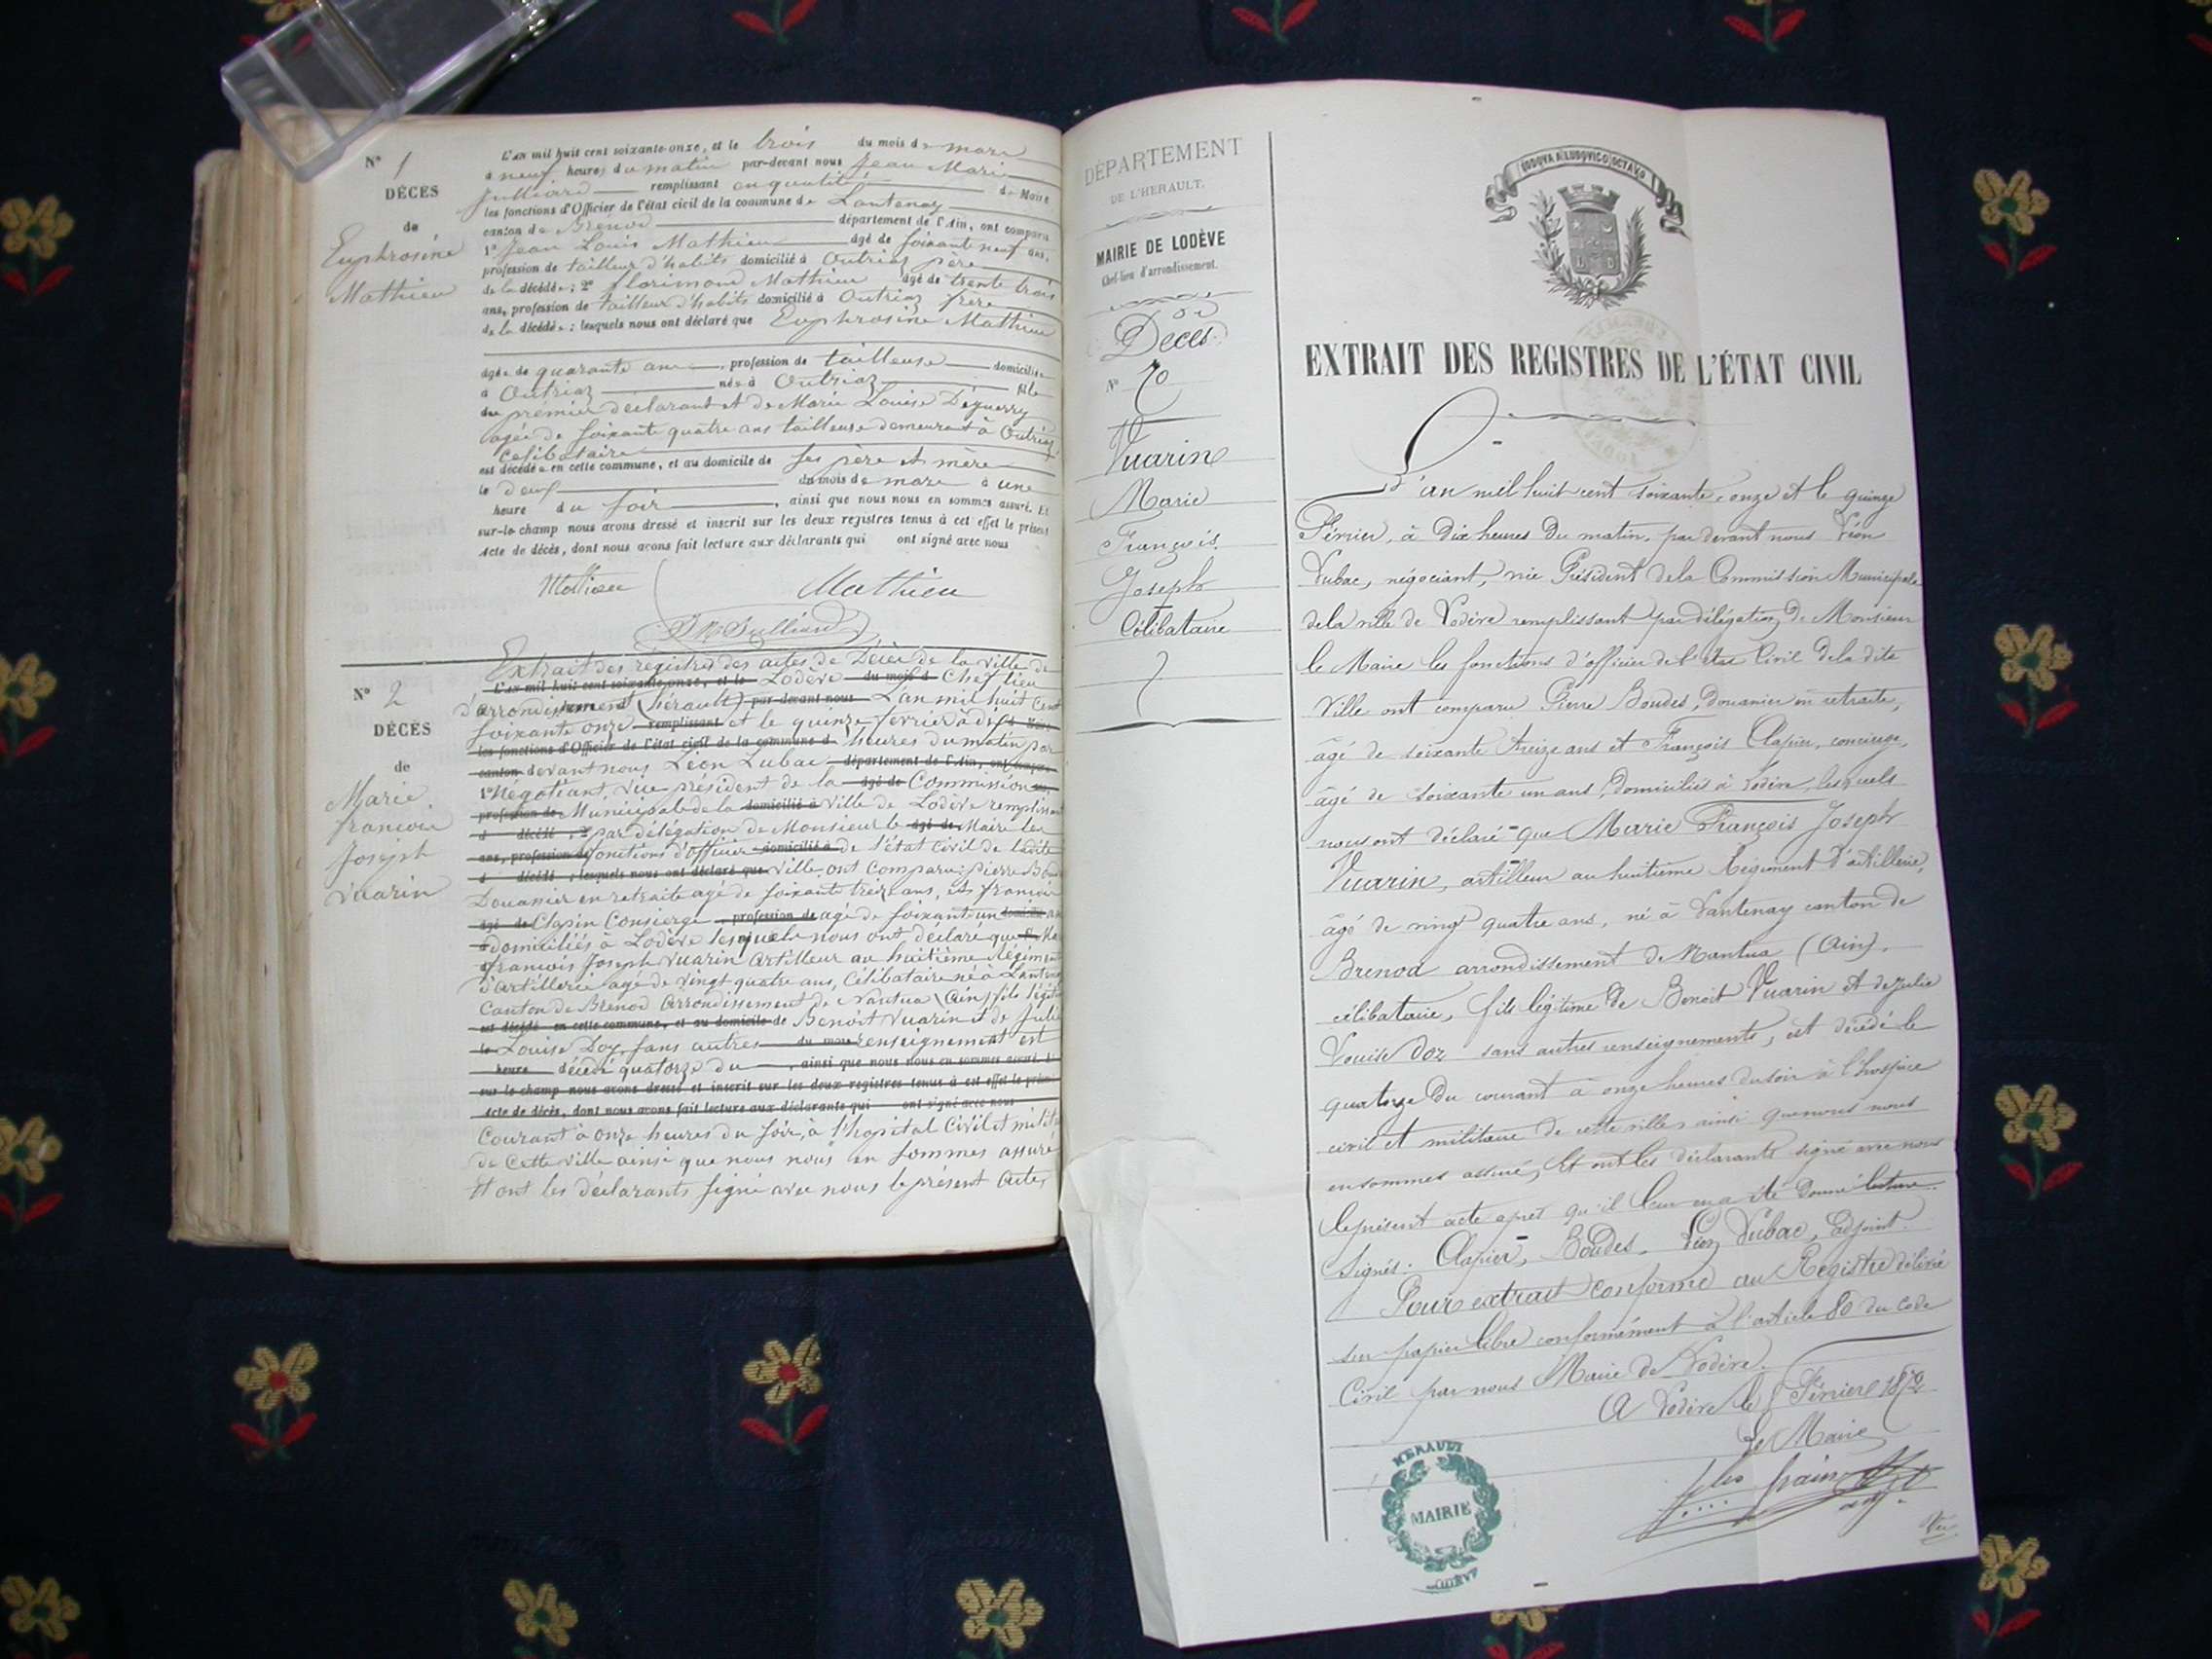 N° 1
DÉCÈS
de
Euphrosine
Mathieu
L'an mil huit cent soixante-onze, et le trois du mois de mars
à neuf heures du matin par-devant nous Jean Marie
Julliard remplissant en qualité de Maire
les fonctions d'Officier de l'état civil de la commune de Lantenay
canton de Brénod département de l'Ain, ont comparu
1° Jean Louis Mathieu âgé de soixante neuf ans,
profession de tailleur d'habits domicilié à Outriaz père
de la décédée ; 2° florimond Mathieu âgé de trente trois
ans, profession de tailleur d'habits domicilié à Outriaz frère
de la décédée ; lesquels nous ont déclaré que Euphrosine Mathieu
âgée de quarante ans, profession de tailleuse domiciliée
à Outriaz née à Outriaz fille
du premier déclarant et de Marie Louise Déguerry
agée de soixante quatre ans tailleuse demeurant à Outriaz
Celibataire
est décédée en cette commune, et au domicile de ses père et mère
le deux du mois de mars à une
heure du soir, ainsi que nous nous en sommes assuré. Et
sur-le-champ nous avons dressé et inscrit sur les deux registres tenus à cet effet le présent
Acte de décès, dont nous avons fait lecture aux déclarants qui ont signé avec nous
Mathieu Mathieu
JM Julliard
N° 2
DÉCÈS
de
Marie
françois
Joseph
Vuarin
Extrait des registres des actes de Décès de la ville de
L'an mil huit cent soixante-onze, et le Lodève du mois d Chef lieu
d'arrondissement (hérault) par-devant nous L'an mil huit cent
soixante onze remplissant et le quinze fevrier à dix
les fonctions d'Officier de l'état civil de la commune d heures du matin par
canton devant nous Léon Lubac département de l'Ain, ont comparu
1° Négociant vice président de la âgé de Commission
profession de Municipale de la domicilié à ville de Lodève remplissant
d décédé ; 2° par délégation de Monsieur le âgé de Maire les
ans, profession de fonctions d'officier domicilié à de l'état civil de ladite
d décédé ; lesquels nous ont déclaré que ville, ont comparu : pierre
Douanier en retraite agé de soixante treize ans, et françois
âgé de Clapin Consierge profession de agé de soixante un
domiciliés à Lodève lesquels nous ont déclaré que
françois Joseph Vuarin artilleur au huitième Régiment
d'artillerie agé de vingt quatre ans, Célibataire né à
Canton de Brénod arrondissement de Nantua (Ain) fils
est décédé en cette commune, et au domicile de Benoit Vuarin et de Julie
le Louise Doz, sans autres du mois renseignement est
heure décédé quatorze du, ainsi que nous nous en sommes assuré. Et
sur-le-champ nous avons dressé et inscrit sur les deux registres tenus à cet effet le présent
Acte de décès, dont nous avons fait lecture aux déclarants qui ont signé avec nous
Courant à onze heures du soir, à l'hopital Civil et
de Cette ville ainsi que nous nous en sommes assuré
Et ont les déclarants signé avec nous le présent acte,
DÉPARTEMENT
DE L'HÉRAULT.
MAIRIE DE LODÈVE
Chef-lieu d'arrondissement.
Décès
N° 70
Vuarin
Marie
François
Joseph
Célibataire
LODOVA A LUDOVICO OCTAVO
EXTRAIT DES REGISTRES DE L'ÉTAT CIVIL
L'an mil huit cent soixante-onze et le quinze
Février, à dix heures du matin, par devant nous Léon
Lubac, négociant, vice Président de la Commission Municipale
de la ville de Lodève remplissant par délégation de Monsieur
le Maire les fonctions d'officier de l'état Civil de la dite
Ville ont comparu Pierre Boudes, Douanier en retraite,
âgé de soixante treize ans et François Clapier, concierge,
âgé de soixante un ans, domiciliés à Lodève, lesquels
nous ont déclaré que Marie François Joseph
Vuarin, artilleur au huitième Régiment d'artillerie,
âgé de vingt quatre ans, né à Lantenay canton de
Brenod arrondissement de Nantua (Ain),
célibataire, fils légitime de Benoit Vuarin et de Julie
Louise Doz sans autres renseignements, est décédé le
quatorze du courant à onze heures du soir à l'hospice
civil et militaire de cette ville, ainsi que nous nous
en sommes assuré, Et ont les déclarants signé avec nous
le présent acte après qu'il leur en a été donné lecture.
Signés : Clapier, Boudes, Léon Lubac, adjoint.
Pour extrait conforme au Registre délivré
sur papier libre conformément à l'article 80 du code
Civil par nous Maire de Lodève.
A Lodève le Février 1872
Le Maire
adj.
Vu
HERAULT
MAIRIE
LODÈVE